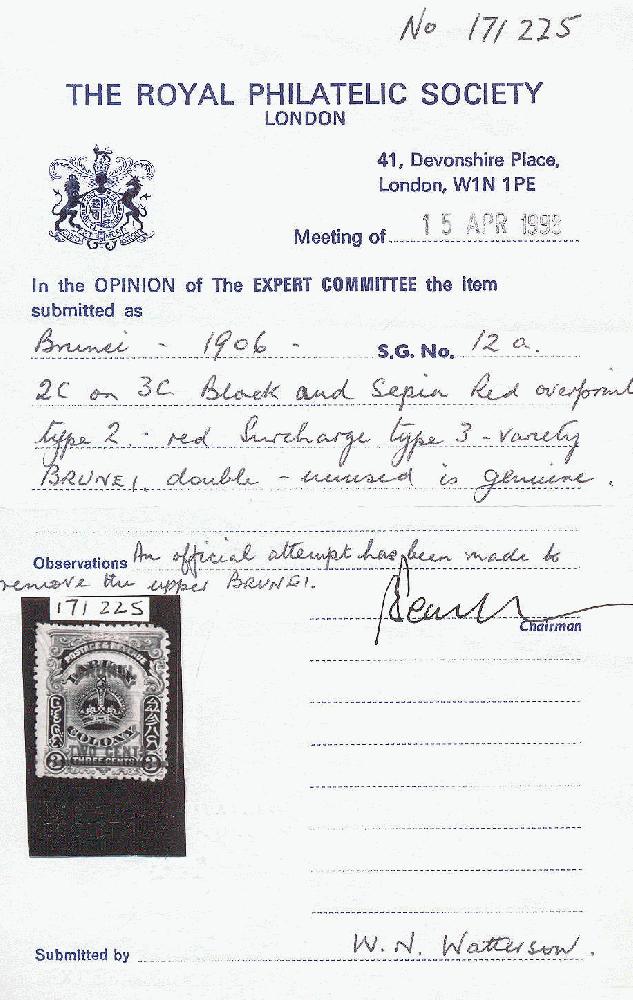 No 171225
THE ROYAL PHILATELIC SOCIETY
LONDON
41, Devonshire Place,
London, W1N 1PE
Meeting of 15 APR 1998
In the OPINION of The EXPERT COMMITTEE the item
submitted as
Brunei - 1906 - S.G. No. 12 a.
2C on 3C Black and Sepia Red overprint
type 2. - red Surcharge type 3 - variety
BRUNEI double - unused is genuine.
Observations An official attempt has been made to
remove the upper BRUNEI.
Chairman
171225
POSTAGE & REVENUE
COLONY
TWO CENTS
THREE CENTS
Submitted by W. N. Watterson.